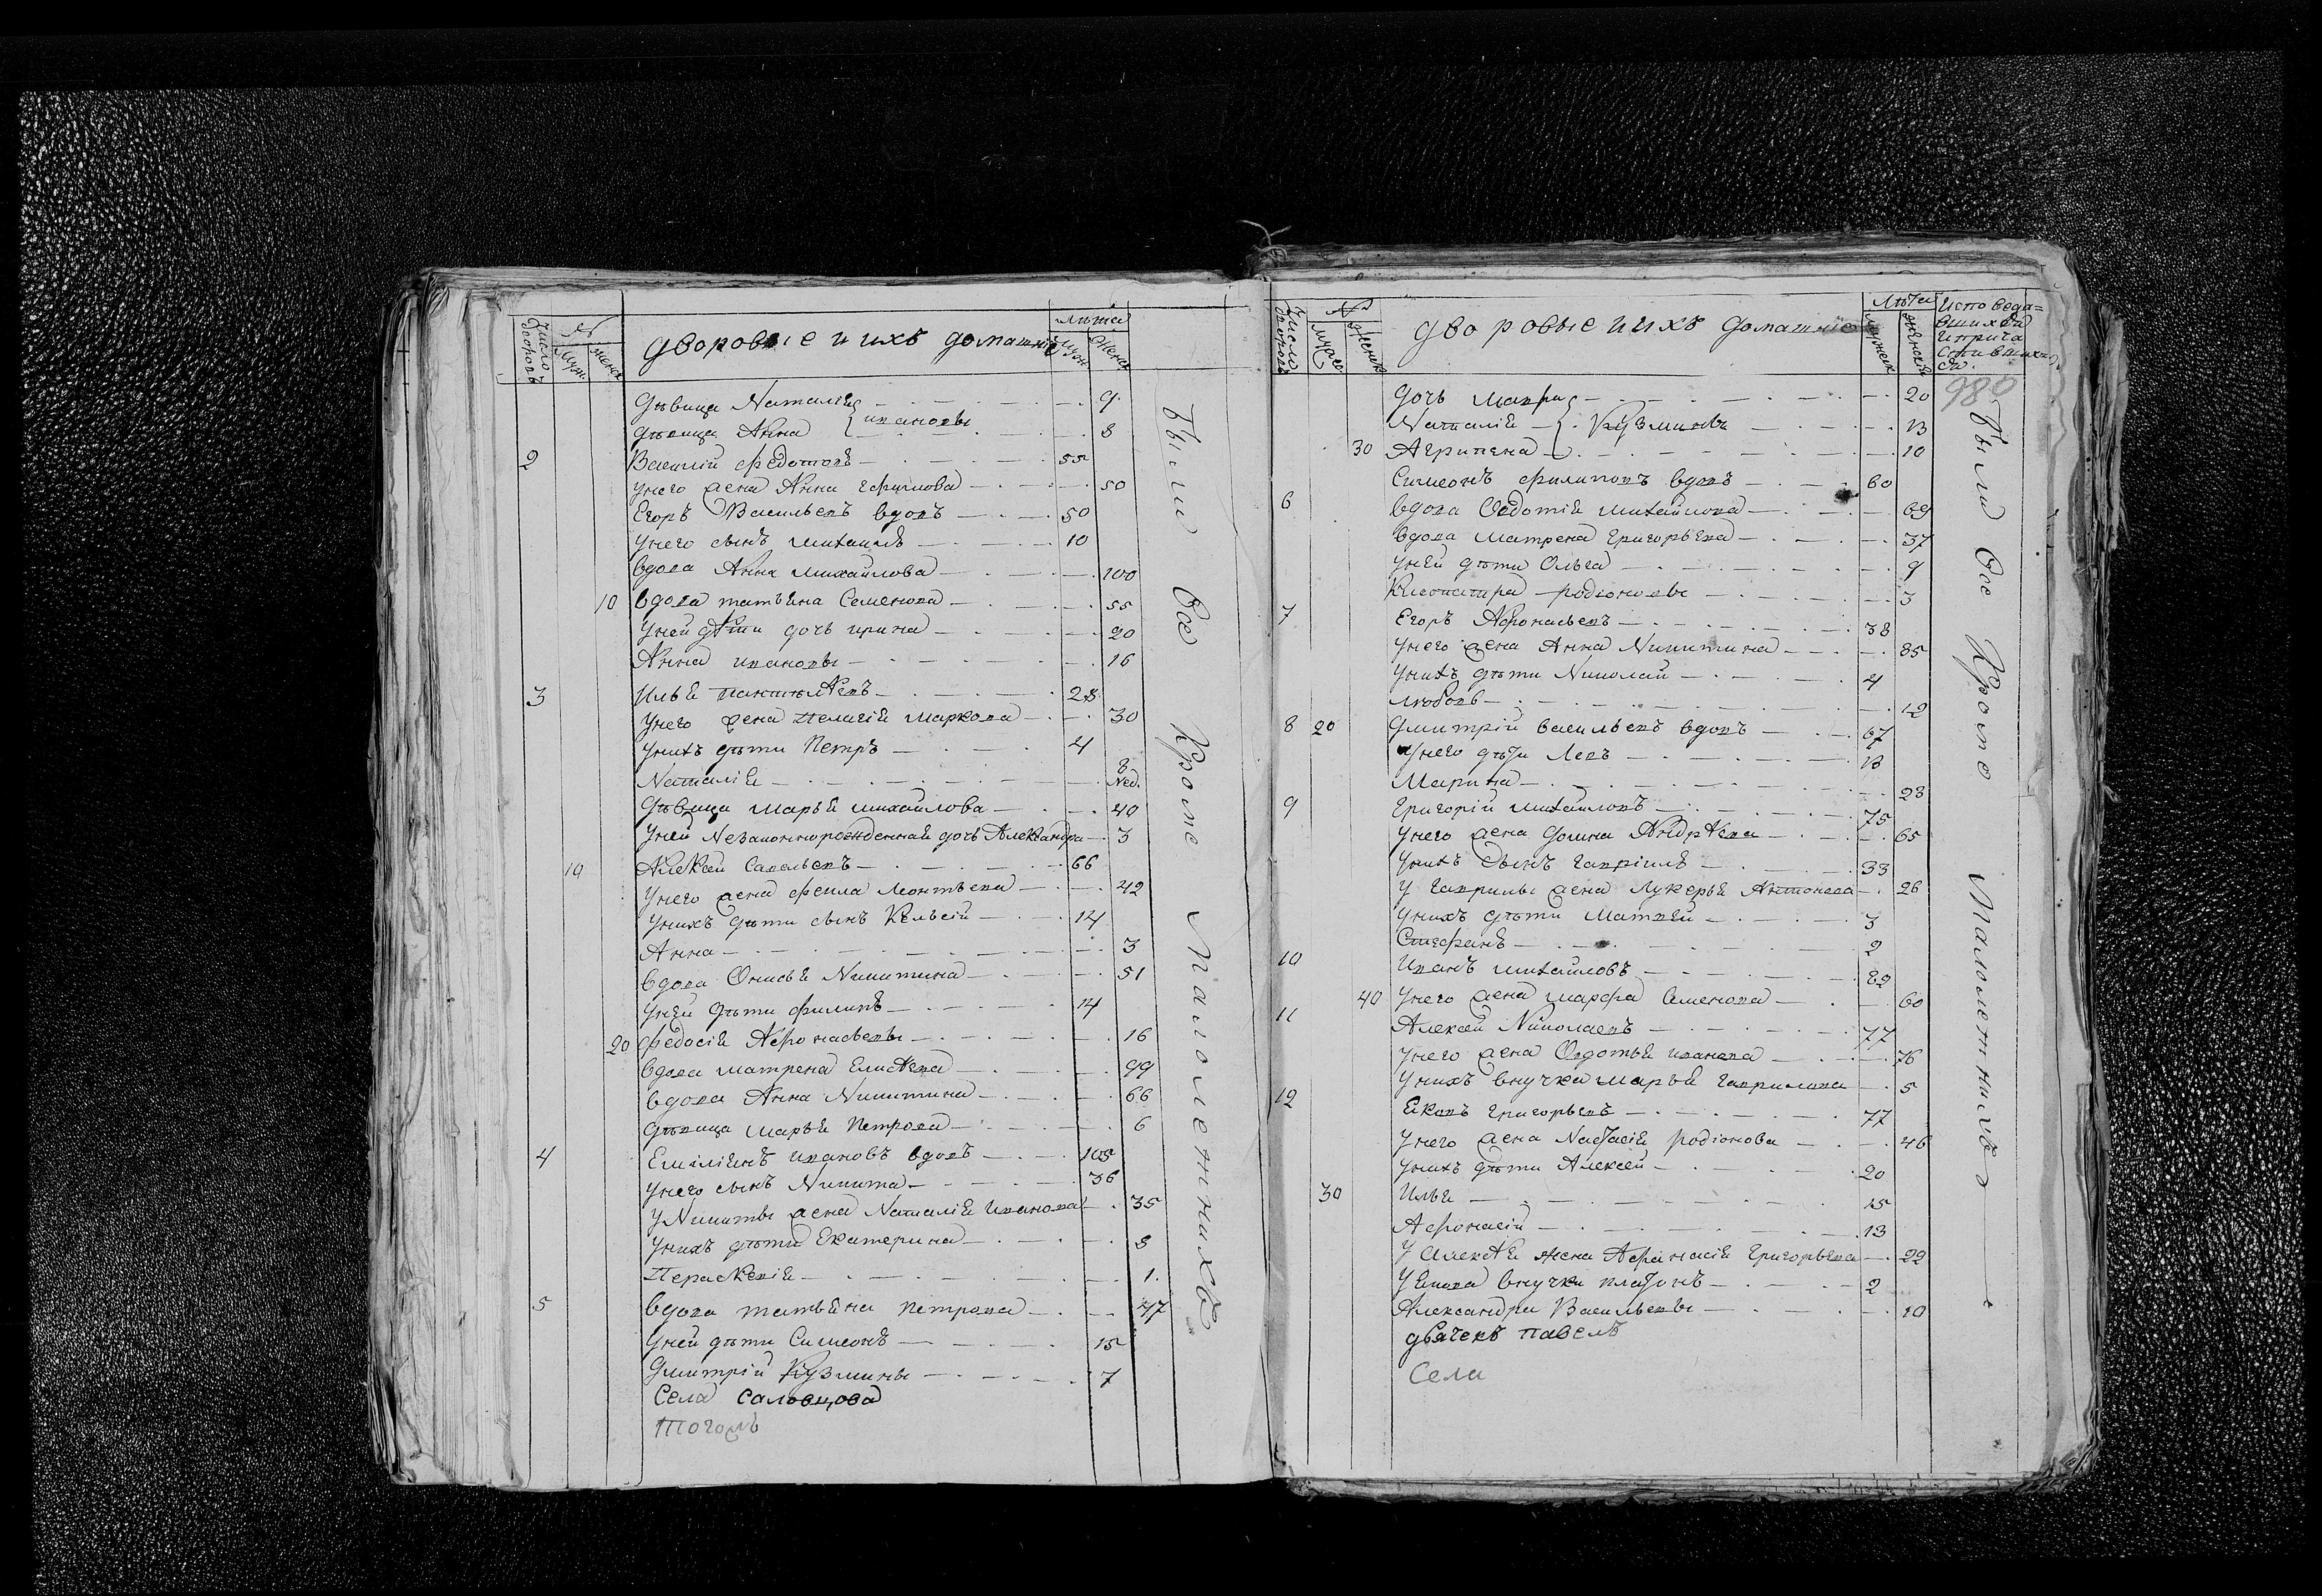 Число дворовъ
№
Муж.
женск
дворовые и ихъ домашніе
Лѣта
Муж
Женск
дѣвица Наталія 9
Ивановы
дѣвица Анна 8
2 Василій Федотовъ 55
унего жена Анна Ефимова 50
Егоръ Васильевъ вдовъ 50
унего сынъ Михаилъ 10
вдова Анна Михайлова 100
10 вдова татьяна Семенова 55
уней дѣти дочь ирина 20
Анна ивановы 16
3 Илья пантилѣевъ 28
унего жена Пелагія Маркова 30
унихъ дѣти Петръ 4
Наталія 8 Нед.
дѣвица Марья Михайлова 40
уней Незаконнорожденная дочь Александра 3
10 Алексѣй Савельевъ 66
унего жена Фекла Леонтьева 42
унихъ дѣти сынъ Кельсій 14
Анна 3
вдова Онисья Никитина 51
уней дѣти Филипъ 14
20 Федосія Афонасьевы 16
вдова Матрена Елисѣева 99
вдова Анна Никитина 66
дѣвица Марья Петрова 6
4 Емиліянъ ивановъ вдовъ 105
унего сынъ Никита 36
у Никиты жена Наталія Иванова 35
унихъ дѣти Екатерина 8
Пераскевія 1.
5 вдова татьяна петрова 47
уней дѣти Симеонъ 15
Дмитрій Кузмины 7
Села Саловцова
тогожъ
были всѣ Кроме Малолетнихъ
Число дворовъ
№
Мужс
Женск
дворовые ихъ домашніе
Лѣта
мужеск
женской
исповеда=
вшихся
ипріча
стившихъ
ся.
980
дочь Мавра 20
Наталія Кузминовы 13
30 Агрипена 10
Симеонъ Филиповъ вдовъ 60
6 вдова Овдотія Михайлова 69
вдова Матрена Григорьева 37
уней дѣти Ольга 9
Клеопатра родіоновы 3
7 Егоръ Афонасьевъ 38
унего жена Анна Никитина 35
унихъ дѣти Николай 4
любовь 12
8 20 Дмитрій васильевъ вдовъ 67
унего дѣти Левъ 13
Марина 23
9 Григорій Михайловъ 75
унего жена Домна Андрѣева 65
унихъ Сынъ Гавріилъ 33
у Гаврилы жена Лукерья Антонова 26
унихъ дѣти Матвей 3
Стефанъ 2
10 Иванъ Михайловъ 62
40 унего жена Марфа Семенова 60
11 Алексей Николаевъ 77
унего жена Овдотья иванова 76
унихъ внучка Марья Гаврилова 5
12 Яковъ Григорьевъ 77
унего жена Настасія родіонова 46
унихъ дѣти Алексей 20
30 Илья 15
Афонасій 13
У Алексѣя жена Афанасія Григорьева 22
У Якова внучки платонъ 2
Александра Васильевы 10
дьячекъ павелъ
Села
Были все Кроме Малолетнихъ